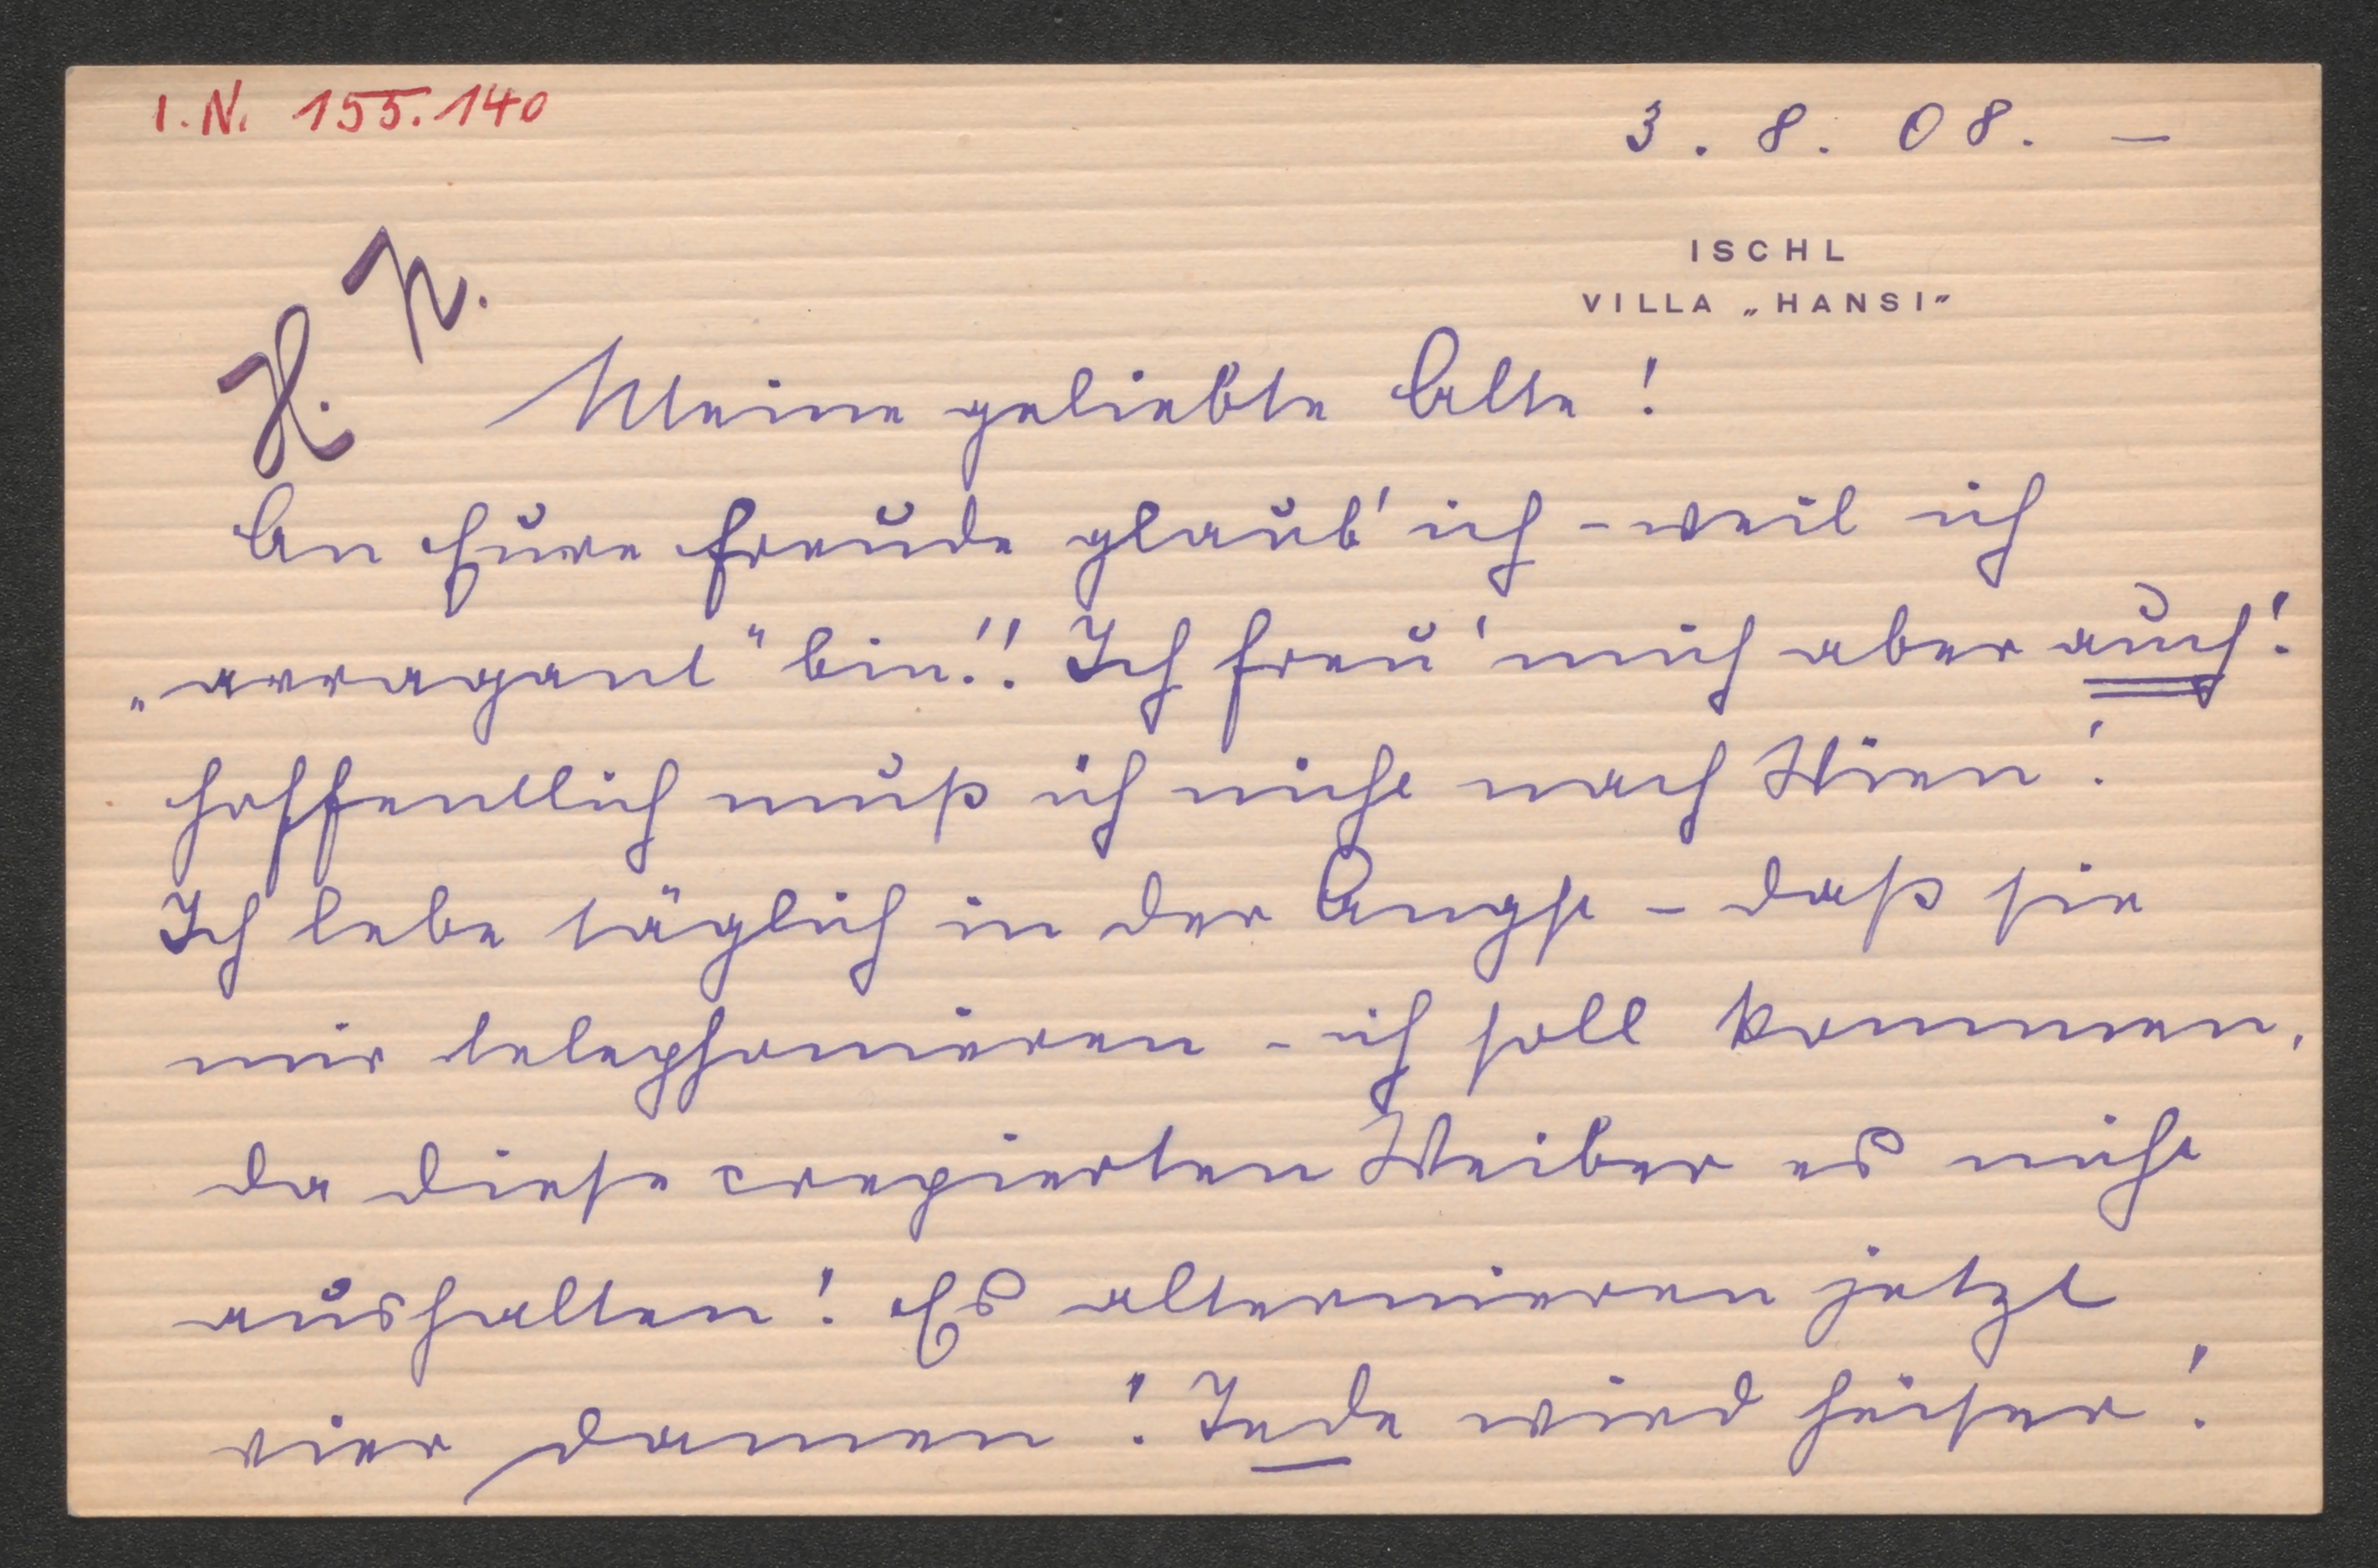 I.N. 155.140
3. 8. 08. —
ISCHL
VILLA „HANSI"
H. N.
Meine geliebte Alte!
An Eure Freude glaub' ich – weil ich
„arragant" bin!! Ich freu' mich aber auch!
hoffentlich muß ich nicht nach Wien!
Ich lebe täglich in der Angst – daß sie
mir telephonieren – ich soll kommen,
da diese crepierten Weiber es nicht
aushalten! Es alternieren jetzt
vier Damen! Jede wird heiser!